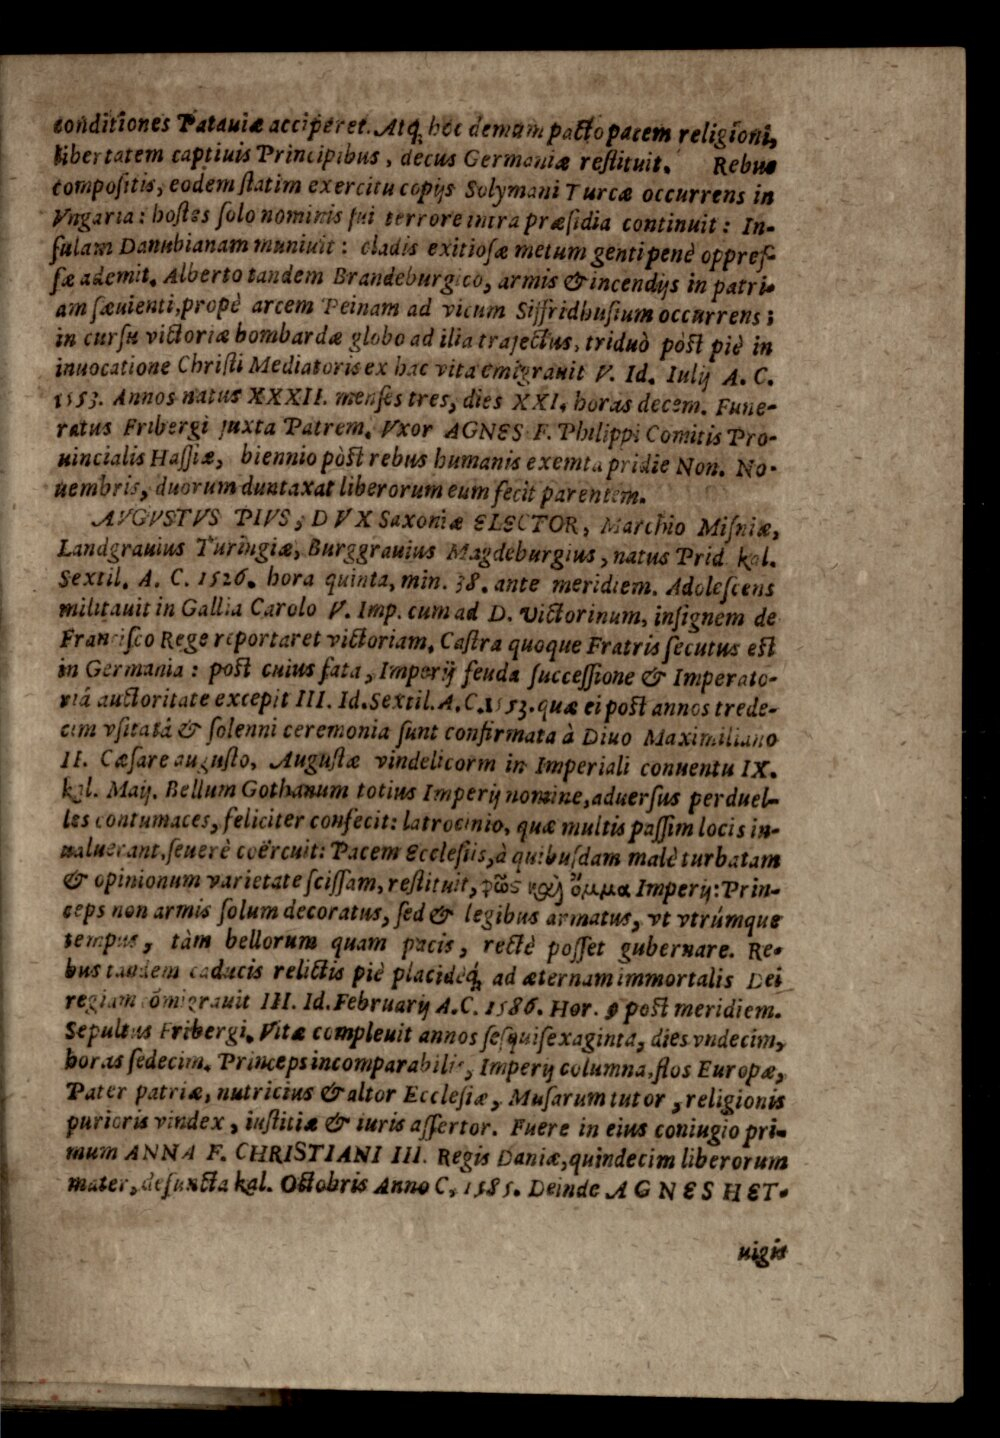 conditiones Patauiæ acciperet. Atq́; hoc demum pacto pacem religioni,
libertatem captiuis Principibus, decus Germaniæ reſtituit. Rebus
compoſitis, eodem ſtatim exercitu copijs Solymani Turcæ occurrens in
Vngaria: hoſtes ſolo nominis ſui terrore intra præſidia continuit: In-
ſulam Danubianam muniuit: cladis exitioſæ metum genti penè oppreſ-
ſæ ademit. Alberto tandem Brandeburgico, armis & incendijs in patri-
am ſæuienti, propè arcem Peinam ad vicum Siffridhuſium occurrens;
in curſu victoriæ bombardæ globo ad ilia trajectus, triduò pòſt piè in
inuocatione Chriſti Mediatoris ex hac vita emigrauit V. Id. Iulij A. C.
1553. Annos natus XXXII. menſes tres, dies XXI. horas decem. Fune-
ratus Fribergi juxta Patrem. Vxor AGNES F. Philippi Comitis Pro-
uincialis Haſſiæ, biennio pòſt rebus humanis exemta pridie Non. No-
uembris, duorum duntaxat liberorum eum fecit parentem.
AVGVSTVS PIVS, DVX Saxoniæ ELECTOR, Marchio Miſniæ,
Landgrauius Turingiæ, Burggrauius Magdeburgius, natus Prid. kal.
Sextil. A. C. 1526. hora quinta, min. 38. ante meridiem. Adoleſcens
militauit in Gallia Carolo V. Imp. cum ad D. Victorinum, inſignem de
Franciſco Rege reportaret victoriam. Caſtra quoque Fratris ſecutus eſt
in Germania: poſt cuius fata, Imperij feuda ſucceſſione & Imperato-
riâ auctoritate excepit III. Id. Sextil. A. C. 1553. quæ ei poſt annos trede-
cim vſitatâ & ſolenni ceremonia ſunt confirmata à Diuo Maximiliano
II. Cæſare auguſto, Auguſtæ vindelicorm in Imperiali conuentu IX.
kal. Maij. Bellum Gothanum totius Imperij nomine, aduerſus perduel-
les contumaces, feliciter confecit: latrocinio, quæ multis paſſim locis in-
ualuerant, ſeuerè coërcuit: Pacem Eccleſiis, à quibuſdam malè turbatam
& opinionum varietate ſciſſam, reſtituit, φῶς καὶ ὄμμα Imperij: Prin-
ceps non armis ſolum decoratus, ſed & legibus armatus, vt vtrúmque
tempus, tàm bellorum quam pacis, rectè poſſet gubernare. Re-
bus tandem caducis relictis piè placidéq́; ad æternam immortalis Dei
regiam cōmigrauit III. Id. Februarij A. C. 1586. Hor. 9 poſt meridiem.
Sepultus Fribergi. Vitæ compleuit annos ſeſquiſexaginta, dies vndecim,
horas ſedecim. Princeps incomparabilis, Imperij columna, flos Europæ,
Pater patriæ, nutricius & altor Eccleſiæ, Muſarum tutor, religionis
purioris vindex, iuſtitiæ & iuris aſſertor. Fuere in eius coniugio pri-
mum ANNA F. CHRISTIANI III. Regis Daniæ, quindecim liberorum
mater, defuncta kal. Octobris Anno C. 1585. Deinde AGNES HET-
uigis